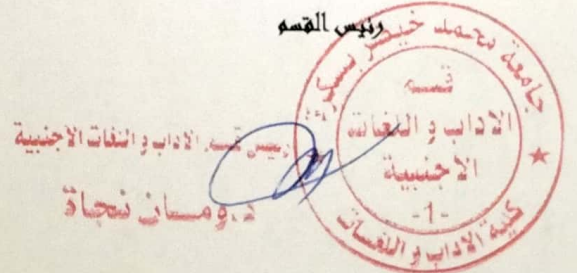 رئيس القسم
جامعة محمد خيضر بسكرة
قسم
الاداب و اللغات
الاجنبية
-1-
كلية الاداب و اللغات
رئيس قسم الاداب و اللغات الاجنبية
د.ومسان نجاة